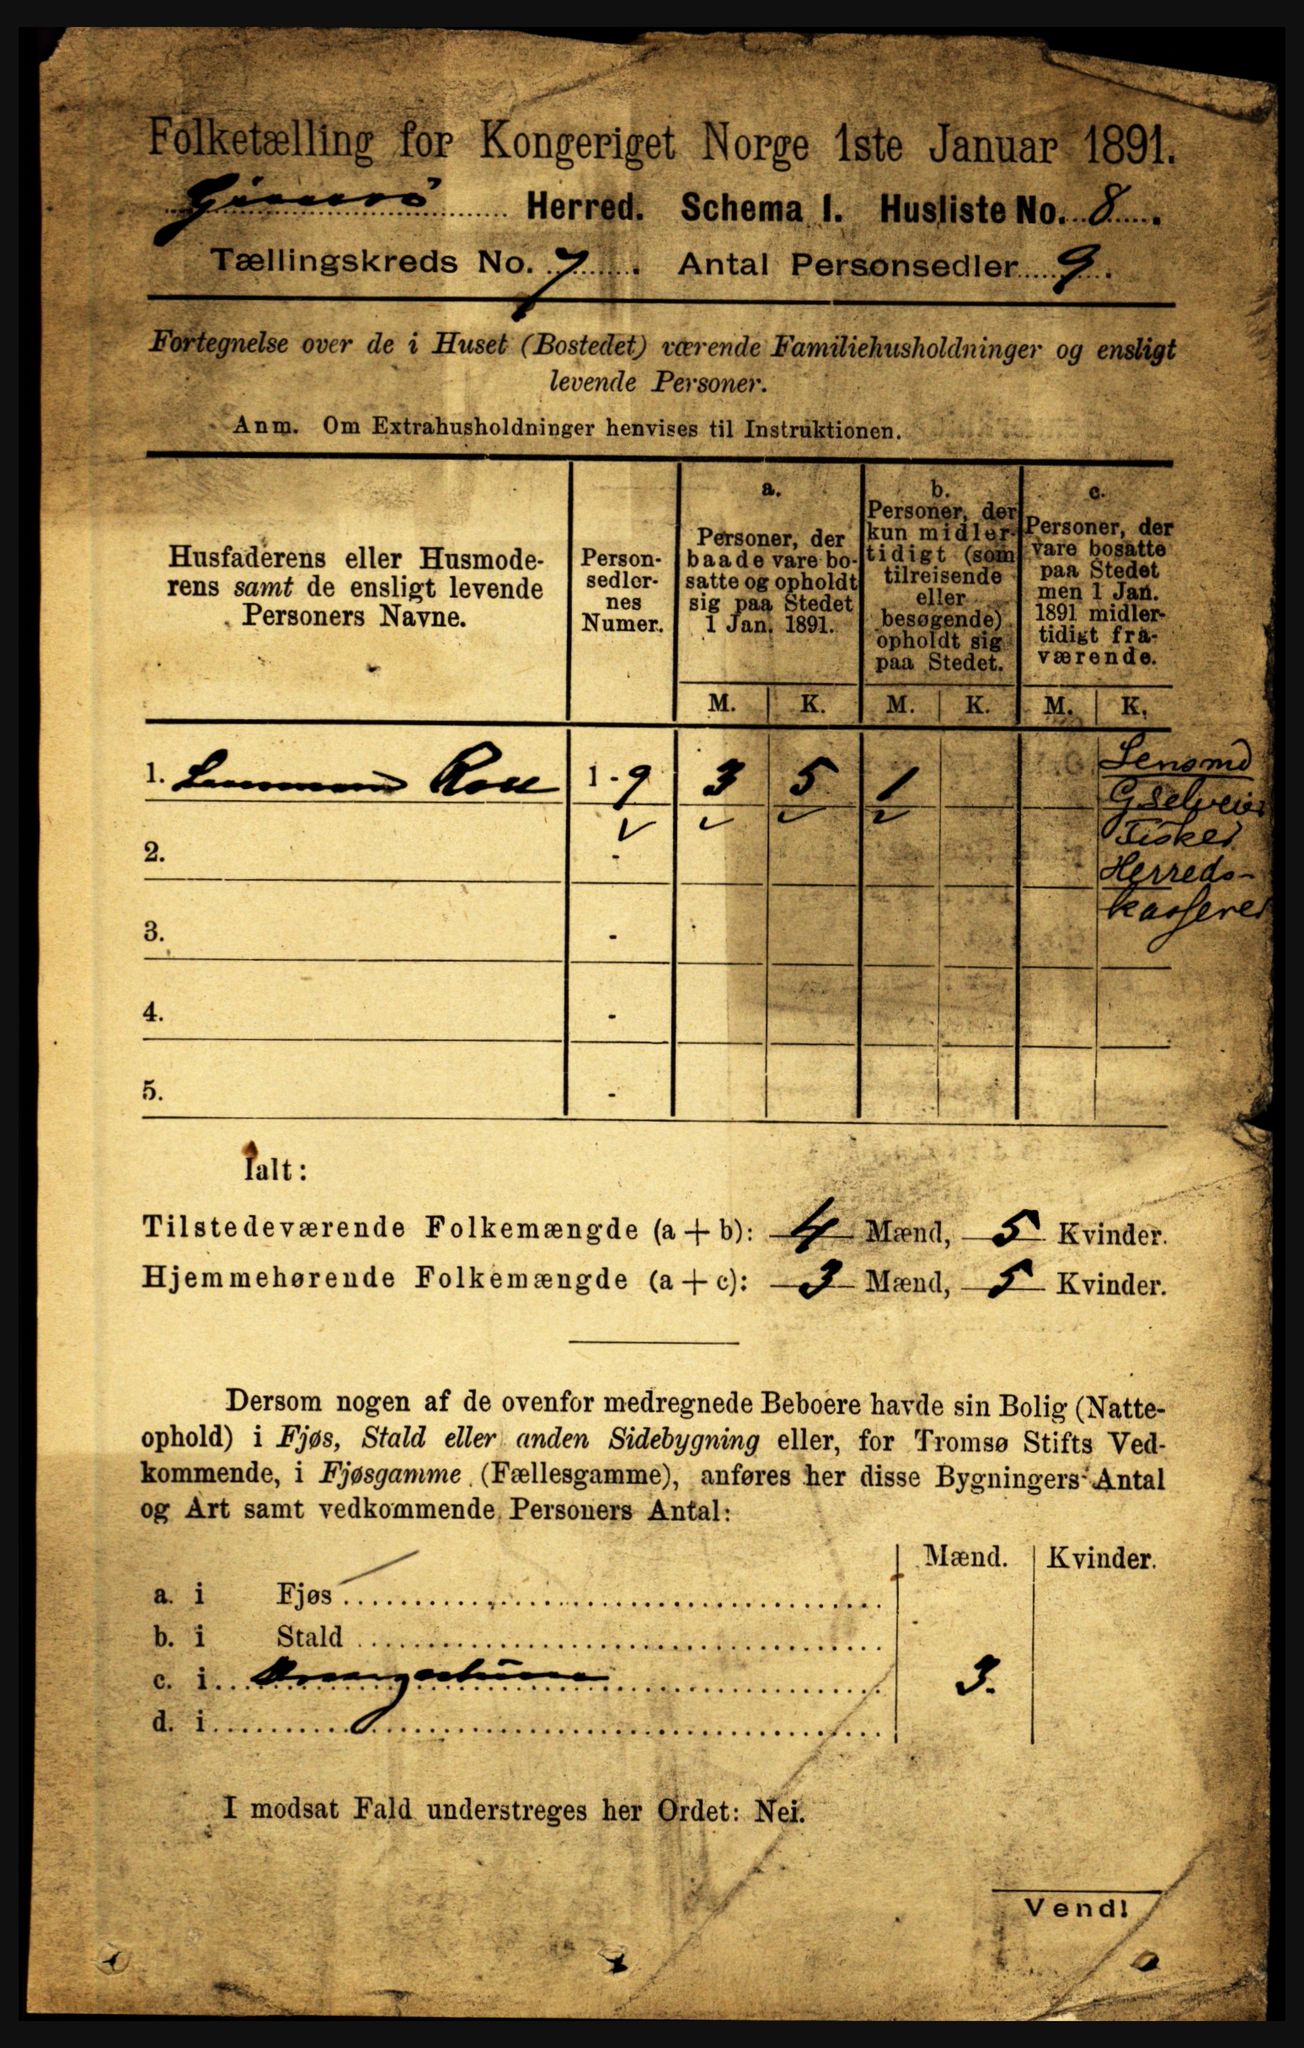 Folketælling for Kongeriget Norge 1ste Januar 1891.
Gimsø Herred. Schema I. Husliste No. 8.
Tællingskreds No. 7. Antal Personsedler 9.
Fortegnelse over de i Huset (Bostedet) værende Familiehusholdninger og ensligt
levende Personer.
Anm. Om Extrahusholdninger henvises til Instruktionen.
Husfaderens eller Husmode-
rens samt de ensligt levende
Personers Navne.
Person-
sedler-
nes
Numer.
a.
Personer, der
baade vare bo-
satte og opholdt
sig paa Stedet
1 Jan. 1891.
b.
Personer, der
kun midler-
tidigt (som
tilreisende
eller
besøgende)
opholdt sig
paa Stedet.
c.
Personer, der
vare bosatte
paa Stedet
men 1 Jan.
1891 midler-
tidigt fra-
værende.
M. K. M. K. M. K.
1. Lensmand 1 - 9 3 5 1
Lensmd
G selveier
Fisker
Herreds-
kasserer
2. -
3. -
4. -
5. -
Ialt:
Tilstedeværende Folkemængde (a + b): 4 Mænd, 5 Kvinder.
Hjemmehørende Folkemængde (a + c): 3 Mænd, 5 Kvinder.
Dersom nogen af de ovenfor medregnede Beboere havde sin Bolig (Natte-
ophold) i Fjøs, Stald eller anden Sidebygning eller, for Tromsø Stifts Ved-
kommende, i Fjøsgamme (Fællesgamme), anføres her disse Bygningers Antal
og Art samt vedkommende Personers Antal:
Mænd. Kvinder.
a. i Fjøs
b. i Stald
c. i 3.
d. i
I modsat Fald understreges her Ordet: Nei.
Vend!